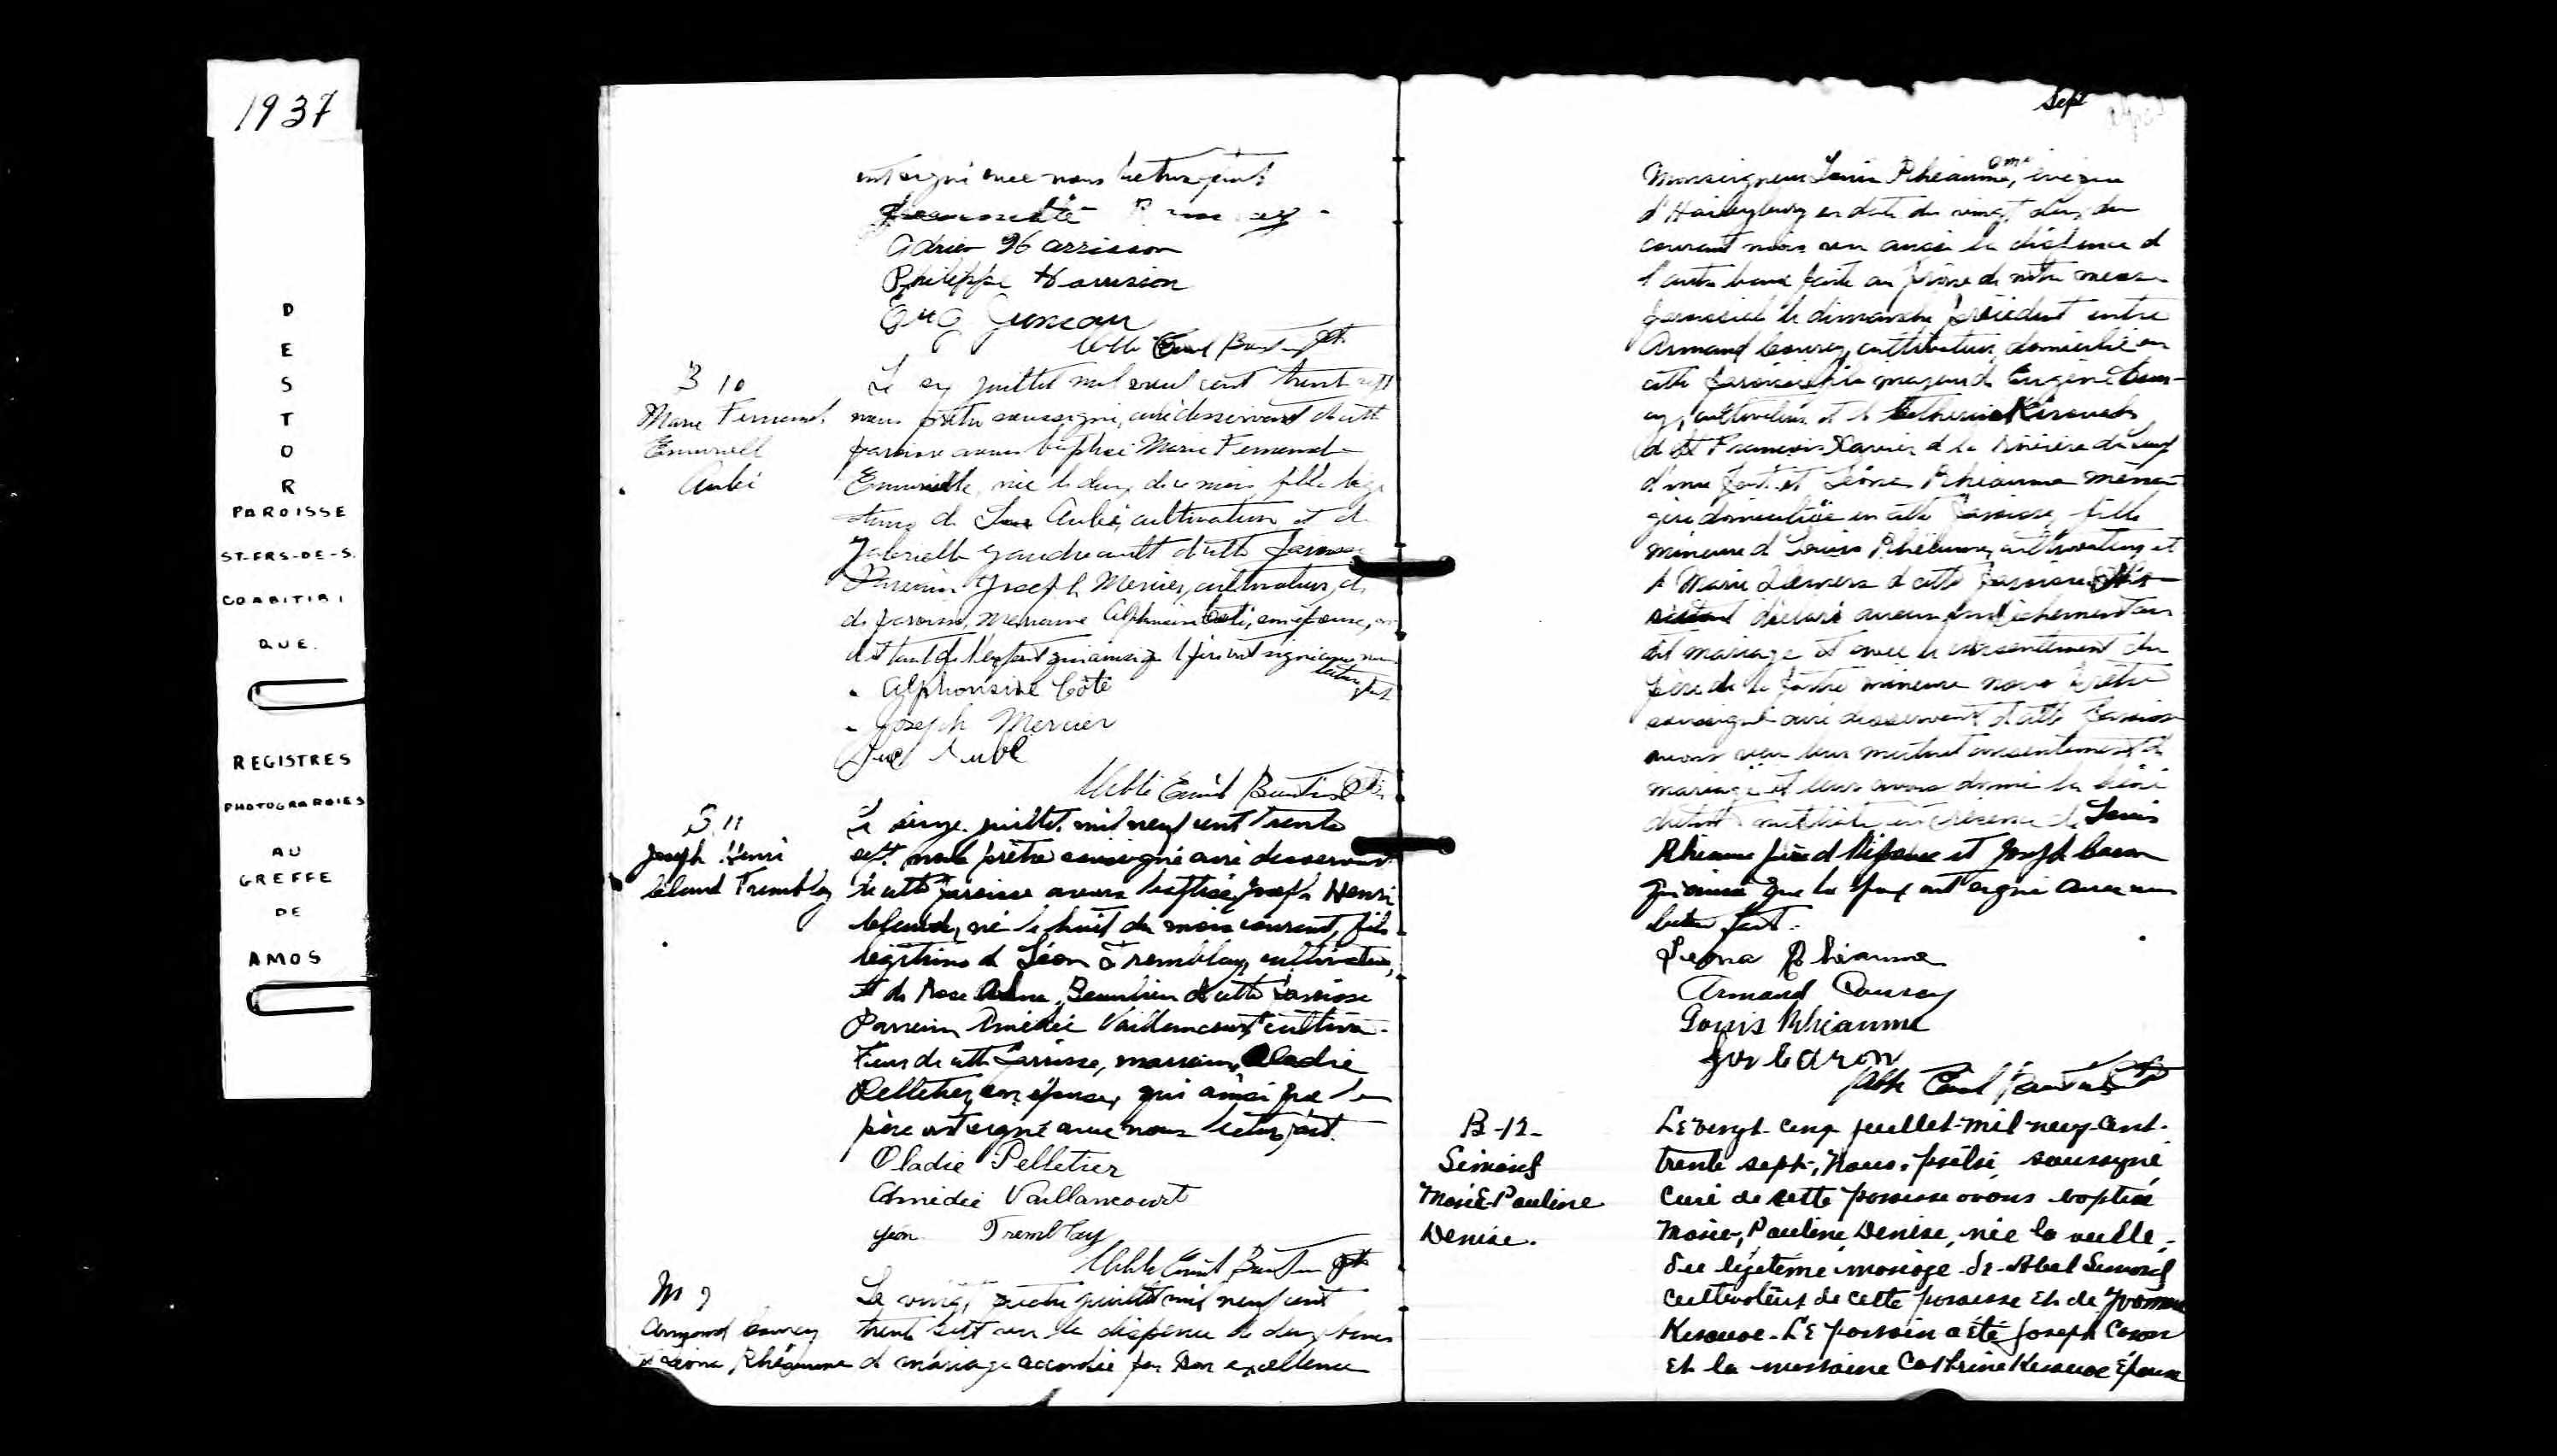 1937
D
E
S
T
O
R
PAROISSE
ST-FRS-DE-S.
COABITIBI
QUE.
REGISTRES
PHOTOGRAPHIES
AU
GREFFE
DE
AMOS
ont signé avec nous lecture faite
Adrien Harrisson
Philippe Harrision
Juneau
Abbé Emile
B 10
Marie Fernand
Emurielle
Aubé
Le six juillet mil neuf cent trente sept
nous prêtre soussigné, curé desservant de cette
paroisse avons baptisé Marie Fernande
Emurielle, née le deux de ce mois, fille légi
time de Luc Aubé, cultivateur et de
Gabrielle Gaudreault de cette paroisse
Parrain Joseph Mercier, cultivateur, de
de paroisse, marraine Alphonsine Côté, son épouse,
de l'enfant qui ainsi que le père ont signé avec nous
lecture faite
Alphonsine Côté
Joseph Mercier
Luc Aubé
Abbé Emile
B 11
Joseph Henri
Léland Tremblay
Le seize juillet mil neuf cent trente
sept nous prêtre soussigné curé desservant
de cette paroisse avons baptisé Joseph Henri
né le huit du mois courant, fils
légitime de Léon Tremblay, cultivateur,
et de Rose Beaulieu de cette paroisse
Parrain Amédée Vaillancourt cultiva-
teur de cette paroisse, marraine, Oladie
Pelletier, son épouse, qui ainsi que le
père ont signé avec nous lecture faite.
Oladie Pelletier
Amédée Vaillancourt
Léon Tremblay
Abbé Emile
M 9
Armand Courcy
et Léona Rhéaume
Le vingt quatre juillet mil neuf cent
trente sept vu la dispense de deux bans
de mariage accordée par Son excellence
Sept
Monseigneur Louis Rhéaume, o.m.i. évêque
d'Haileybury en date du vingt deux du
courant mois vu aussi la dispense de
l'autre ban faite au prône de notre messe
paroissiale le dimanche précédent entre
Armand Courcy, cultivateur, domicilié en
cette paroisse fils majeur de Eugène Cour-
cy, cultivateur et de Catherine Kirouack
de St François Xavier de la Rivière du Loup
d'une part et Léona Rhéaume ména-
gère domiciliée en cette paroisse, fille
mineure de Louis Rhéaume, cultivateur, et
de Marie Demers de cette paroisse
déclaré aucun empêchement au
dit mariage et avec le consentement du
père de la partie mineure nous prêtre
soussigné curé desservant de cette paroisse
avons reçu leur mutuel consentement de
mariage et leur avons donné la béné
diction nuptiale en présence de Louis
Rhéaume père de l'épouse et Joseph Caron
qui ainsi que les époux ont signé avec nous
lecture faite.
Leona Rhéaume
Armand Courcy
Louis Rhéaume
Jos Caron
Abbé Emile
B-12-
Simard
Marie-Pauline
Denise.
Le vingt-cinq juillet-mil-neuf-cent-
trente sept, Nous, prêtre soussigné
curé de cette paroisse avons baptisé
Marie, Pauline, Denise, née la veille,
du légitime mariage de Abel Simard
cultivateur de cette paroisse et de Yvonne
Kirouac. Le parrain a été Joseph Caron
et la marraine Cathrine Kirouac épouse